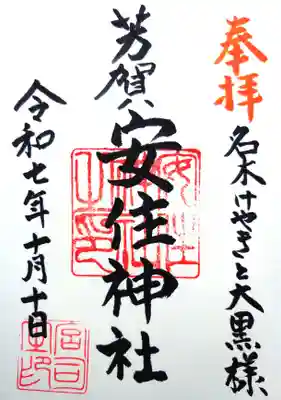 奉拝
名木けやきと大黒様
芳賀
安住神社
令和七年十月十日